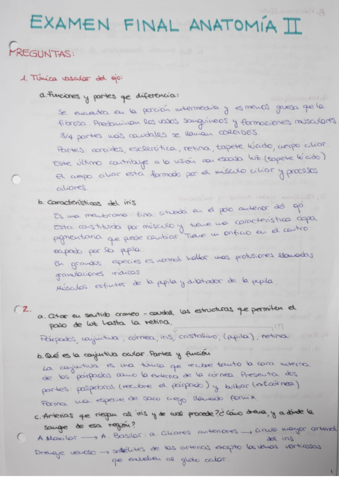 EXAMEN FINAL ANATOMÍA II
PREGUNTAS:
1. Túnica vascular del ojo:
a. Funciones y partes que diferencia:
Se encuentra en la porción intermedia y es menos gruesa que la
fibrosa. Predominan los vasos sanguíneos y formaciones musculares
partes más caudales se llaman COROIDES
Partes: coroides esclerótica, retina, tapete lúcido, cuerpo ciliar
Este último contribuye a la visión con escasa luz (tapete lúcido)
El cuerpo ciliar está formado por el músculo ciliar y procesos
ciliares.
b. Características del iris
Es una membrana fina situada en el polo anterior del ojo
Está constituida por músculo y tiene una característica capa
pigmentaria que puede cambiar. Tiene un orificio en el centro
ocupado por la pupila
En grandes especies es normal hallar unas protusiones llamadas
granulaciones iridicas
Músculos esfínter de la pupila y dilatador de la pupila
2.
a. Citar en sentido craneo-caudal las estructuras que permiten el
paso de luz hasta la retina.
Párpados, conjuntiva, córnea, iris, cristalino, (pupila), retina
b. Qué es la conjuntiva ocular. Partes y función
La conjuntiva es una túnica que recubre tanto la cara interna
de los párpados como la externa de la córnea. Presenta dos
partes palpebral (recubre el párpado) y bulbar (
Forma una especie de saco ciego llamado fornix
c. Arterias que riegan al iris y de
sangre de esa región?
A. Maxilar → A. → A. Ciliares anteriores → Círculo mayor arterial
del iris
Drenaje venoso → satélites de las arterias excepto las venas vorticosas
que envuelven al globo ocular
1